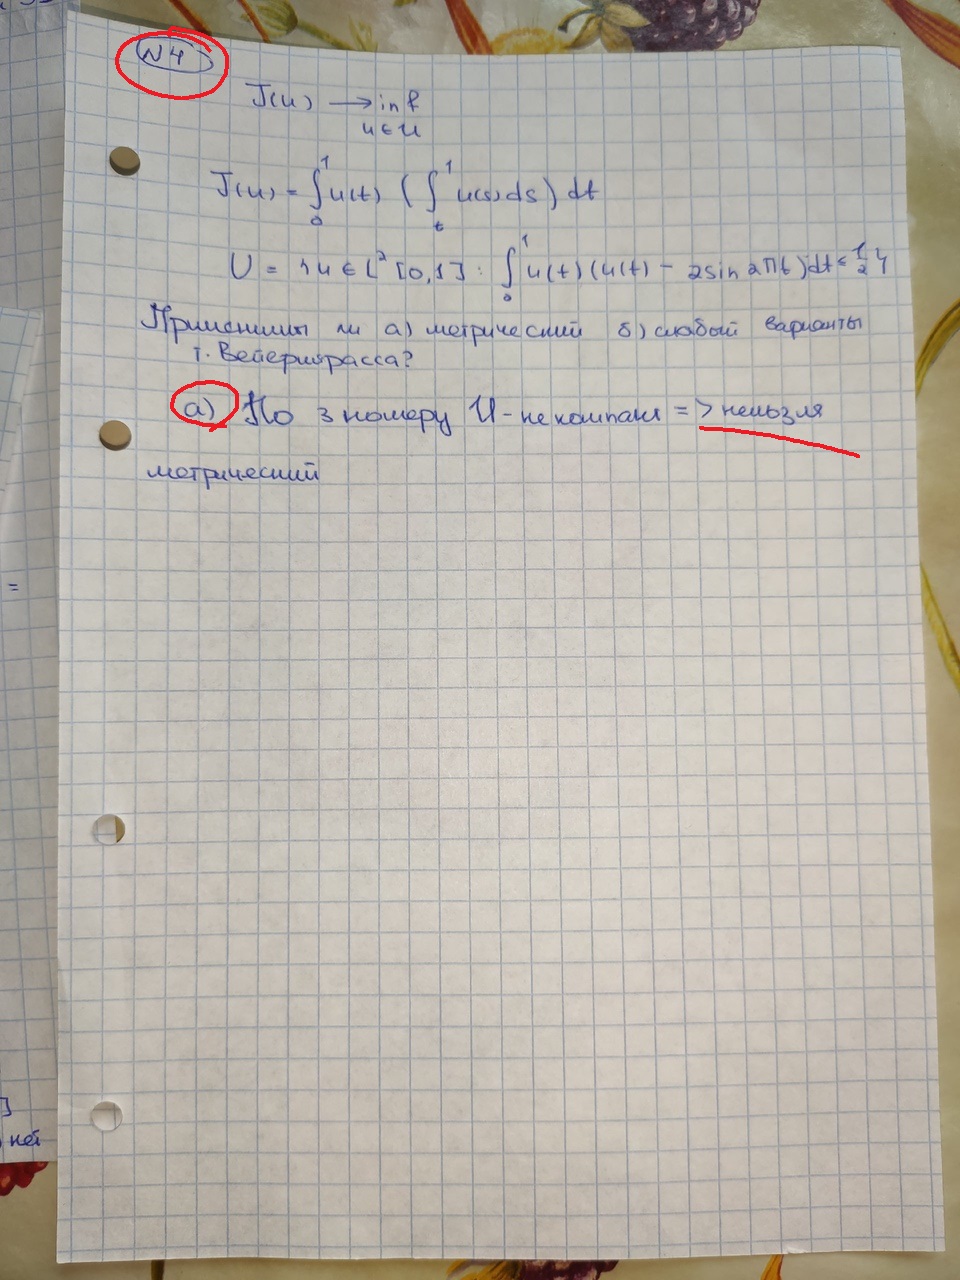 N4
J(u) → inf
u ∈ U
J(u) = ∫₀¹ u(t) (∫ₜ¹ u(s) ds) dt
U = {u ∈ L² [0,1] : ∫₀¹ u(t)(u(t) - 2sin 2πt)dt ≤ 1/2}
Применимы ли а) метрический б) слабый варианты
т. Вейерштрасса?
а) По 3 номеру U - не компакт => нельзя
метрический
=
]
нет